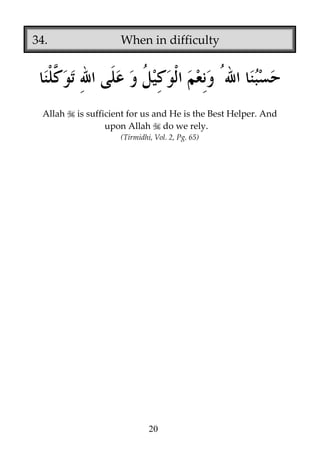 34. When in difficulty
حَسْبُنَا اللهُ وَنِعْمَ الْوَكِيْلُ وَ عَلَى اللهِ تَوَكَّلْنَا
Allah ﷻ is sufficient for us and He is the Best Helper. And
upon Allah ﷻ do we rely.
(Tirmidhi, Vol. 2, Pg. 65)
20